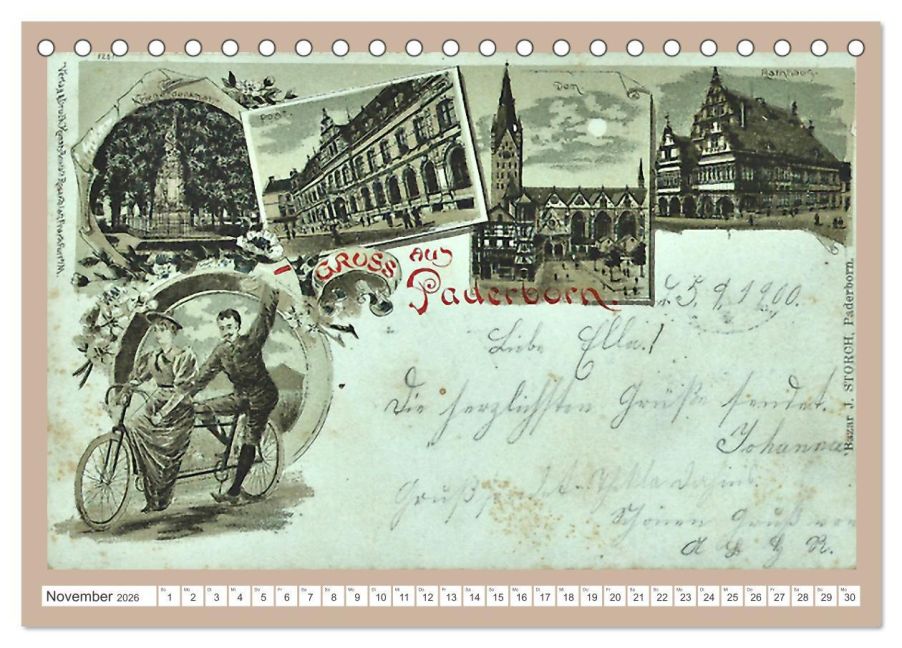 Kriegerdenkmal
Post.
Dom
Rathhaus.
GRUSS
aus
Paderborn.
5. 9. 1900.
Liebe Ella!
Die herzlichsten Grüße sendet
Johanna
Gruß
Schönen Gruß von
Bazar J. STORCH, Paderborn.
November 2026
So Mo Di Mi Do Fr Sa So Mo Di Mi Do Fr Sa So Mo Di Mi Do Fr Sa So Mo Di Mi Do Fr Sa So Mo
1 2 3 4 5 6 7 8 9 10 11 12 13 14 15 16 17 18 19 20 21 22 23 24 25 26 27 28 29 30